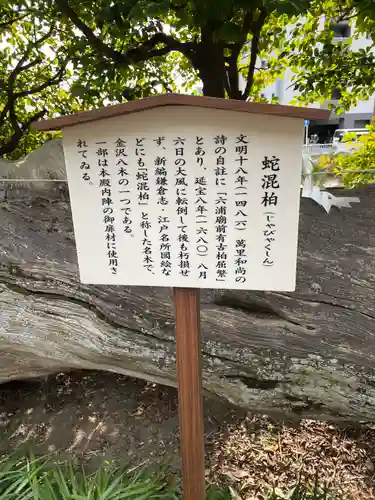 蛇混柏(じゃびゃくしん)
文明十八年(一四八六)萬里和尚の
詩の自註に「六浦廟前有古柏屈繁」
とあり、延宝八年(一六八〇)八月
六日の大風に転倒して後も朽損せ
ず、新編鎌倉志、江戸名所図絵な
どにも「蛇混柏」と称した名木で、
金沢八木の一つである。
一部は本殿内陣の御扉材に使用さ
れてゐる。